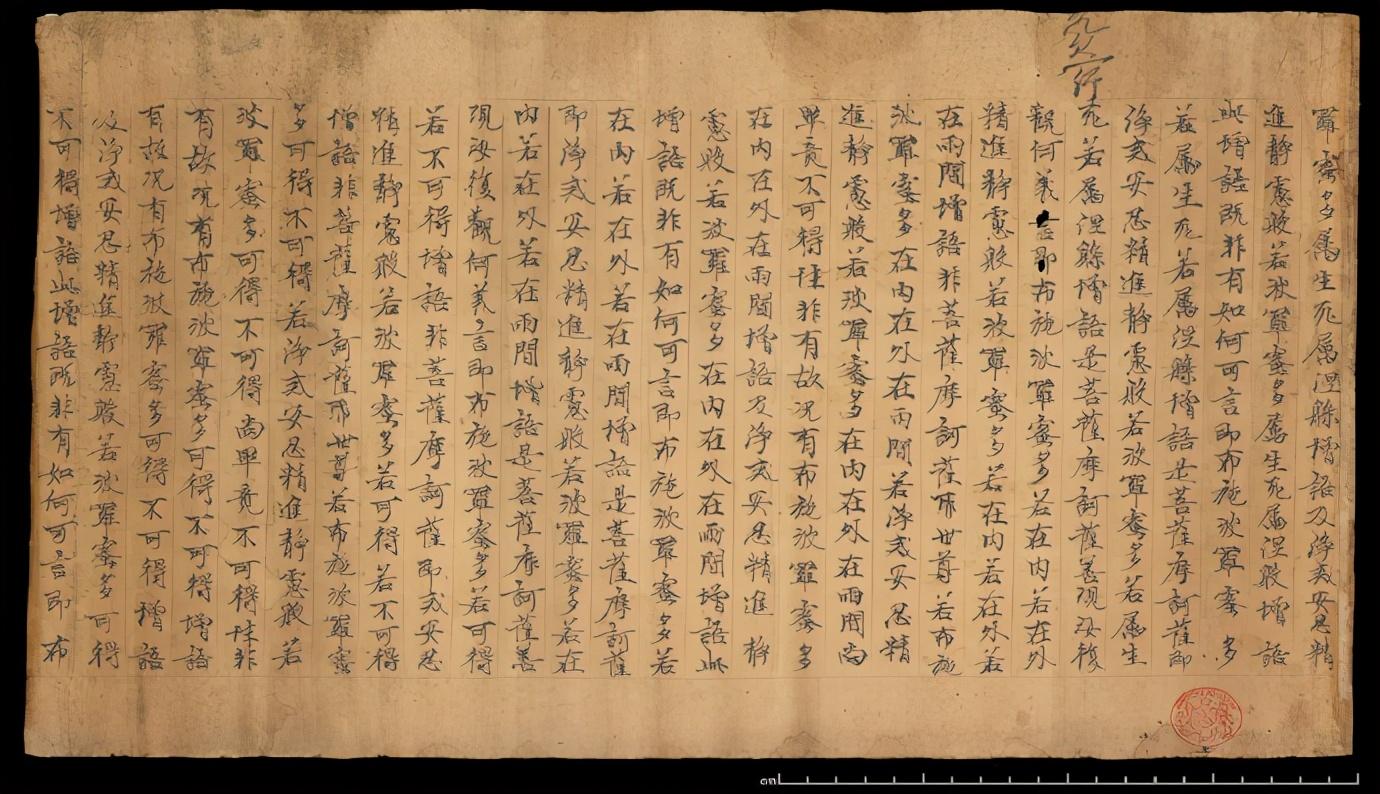 羅蜜多屬生死屬涅槃增語及淨戒安忍精
進靜慮般若波羅蜜多屬生死屬涅槃增語
此增語既非有如何可言即布施波羅蜜多
若屬生死若屬涅槃增語是菩薩摩訶薩即
淨戒安忍精進靜慮般若波羅蜜多若屬生
死若屬涅槃增語是菩薩摩訶薩善現汝復
觀何義言即布施波羅蜜多若在內若在外
精進靜慮般若波羅蜜多若在內若在外若
在兩間增語非菩薩摩訶薩耶世尊若布施
波羅蜜多在內在外在兩間若淨戒安忍精
進靜慮般若波羅蜜多在內在外在兩間尚
畢竟不可得性非有故况有布施波羅蜜多
在內在外在兩間增語及淨戒安忍精進靜
慮般若波羅蜜多在內在外在兩間增語此
增語既非有如何可言即布施波羅蜜多若
在內若在外若在兩間增語是菩薩摩訶薩
即淨戒安忍精進靜慮般若波羅蜜多若在
內若在外若在兩間增語是菩薩摩訶薩善
現汝復觀何義言即布施波羅蜜多若可得
若不可得增語非菩薩摩訶薩即戒安忍
精進靜慮般若波羅蜜多若可得若不可得
增語非菩薩摩訶薩耶世尊若布施波羅蜜
多可得不可得若淨戒安忍精進靜慮般若
波羅蜜多可得不可得尚畢竟不可得性非
有故况有布施波羅蜜多可得不可得增語
有故况有布施波羅蜜多可得不可得增語
及淨戒安忍精進靜慮般若波羅蜜多可得
不可得增語此增語既非有如何可言即布
cm